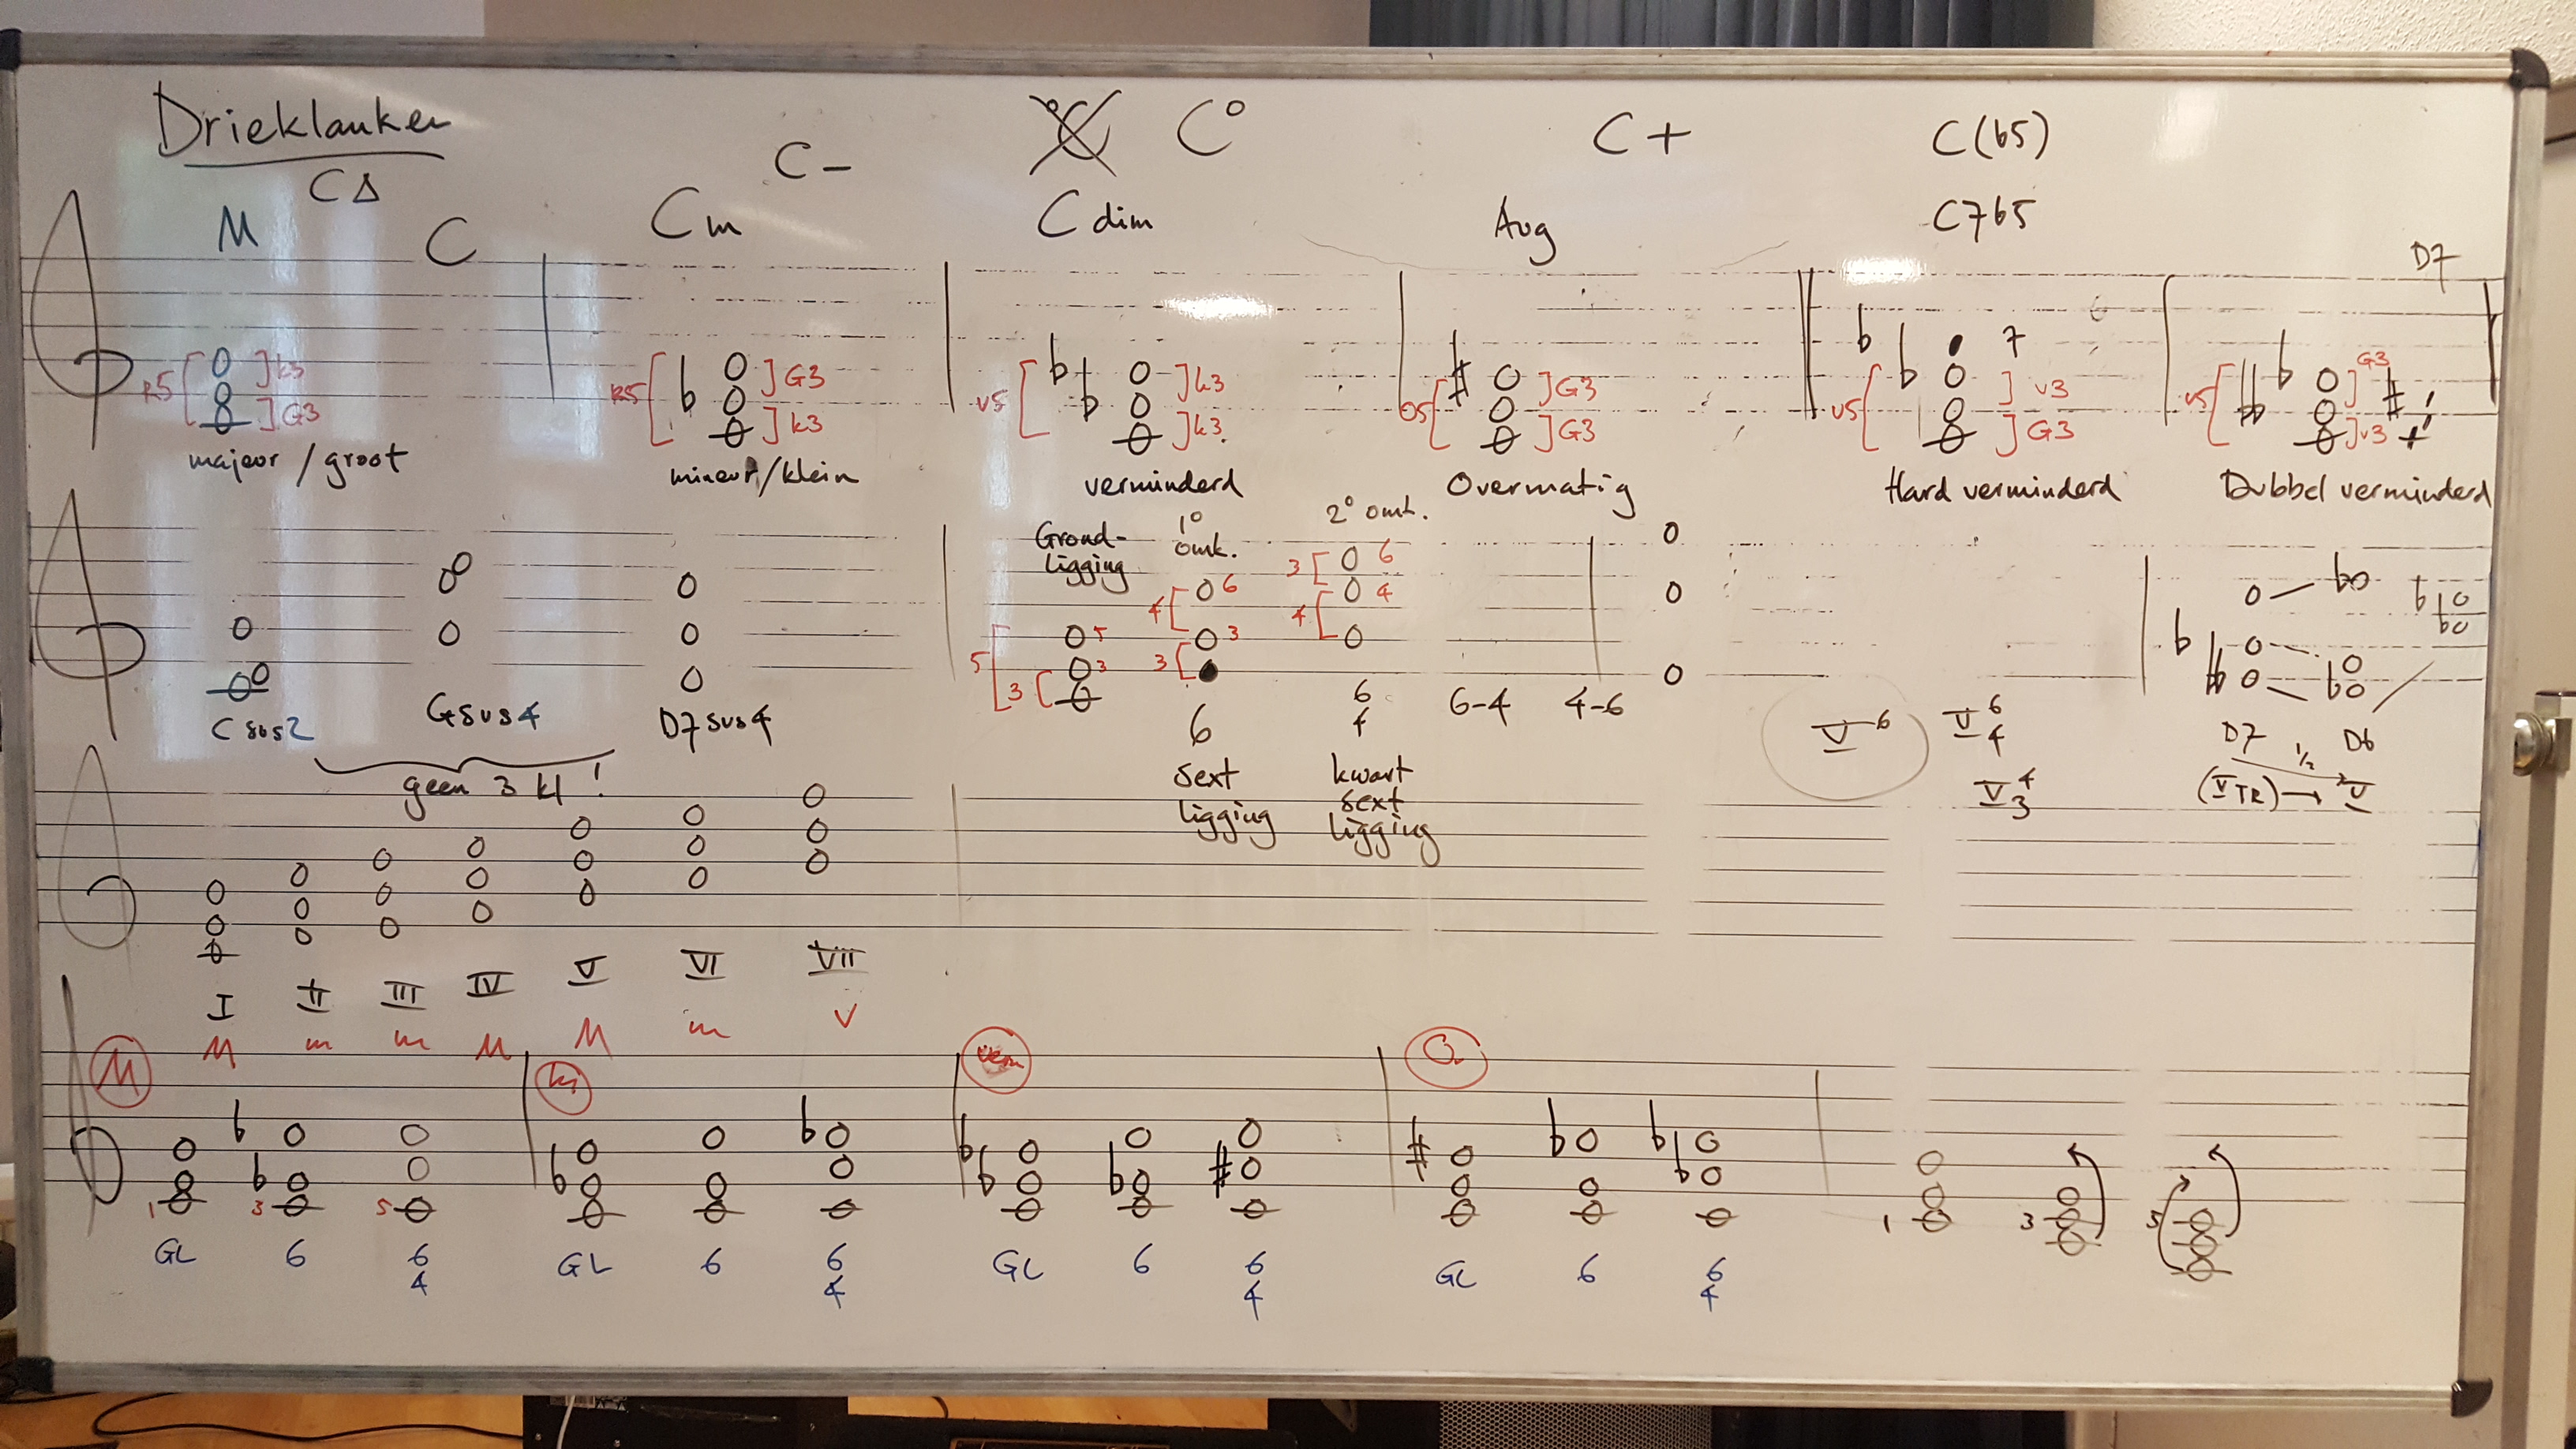 Drieklanken
C° C°
C+
C(b5)
C-
CΔ
M
C
Cm
Cdim
Aug
C7b5
D7
R5 k3 G3
R5 G3 k3
v5 k3 k3
O5 G3 G3
7
v5 v3 G3
v5 G3 v3
majeur / groot
mineur/klein
verminderd
Overmatig
Hard verminderd
Dubbel verminderd
Grond-
ligging
1° omk.
2° omk.
5 3 5 3
4 3 6 3
3 4 6 4
Csus2
Gsus4
D7sus4
geen 3 kl !
6
sext
ligging
6
4
kwart
sext
ligging
6-4
4-6
V6
V6
4
V4
3
D7 D6
1/2
(V TR) → V
I II III IV V VI VII
M m m M M m v
M
kl
verm
O
1 3 5
1 3 5
GL 6 6
4
GL 6 6
4
GL 6 6
4
GL 6 6
4